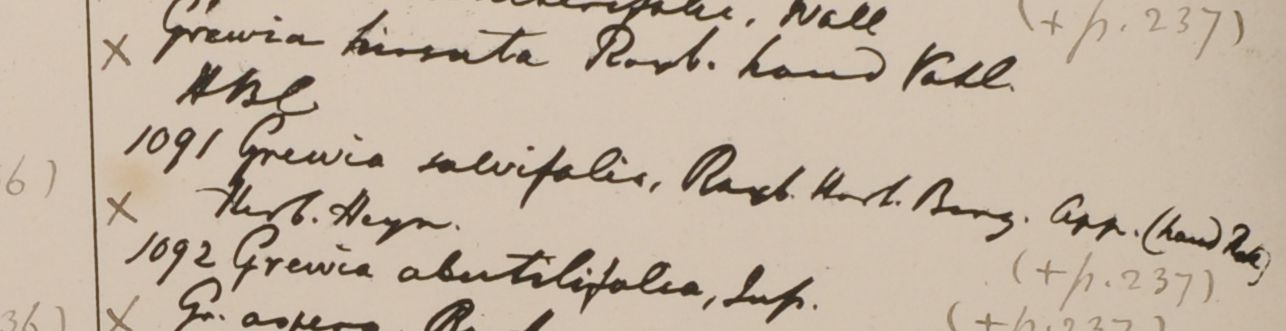 Wall (+ p. 237)
× Grewia hirsuta Roxb. haud Vahl.
HBC
1091 Grewia salvifolia, Roxb. Hort. Beng. App. (haud
6)
× Herb. Heyn.
(+ p. 237)
1092 Grewia abutilifolia,
36) × Gr. aspera, (+ p. 237)